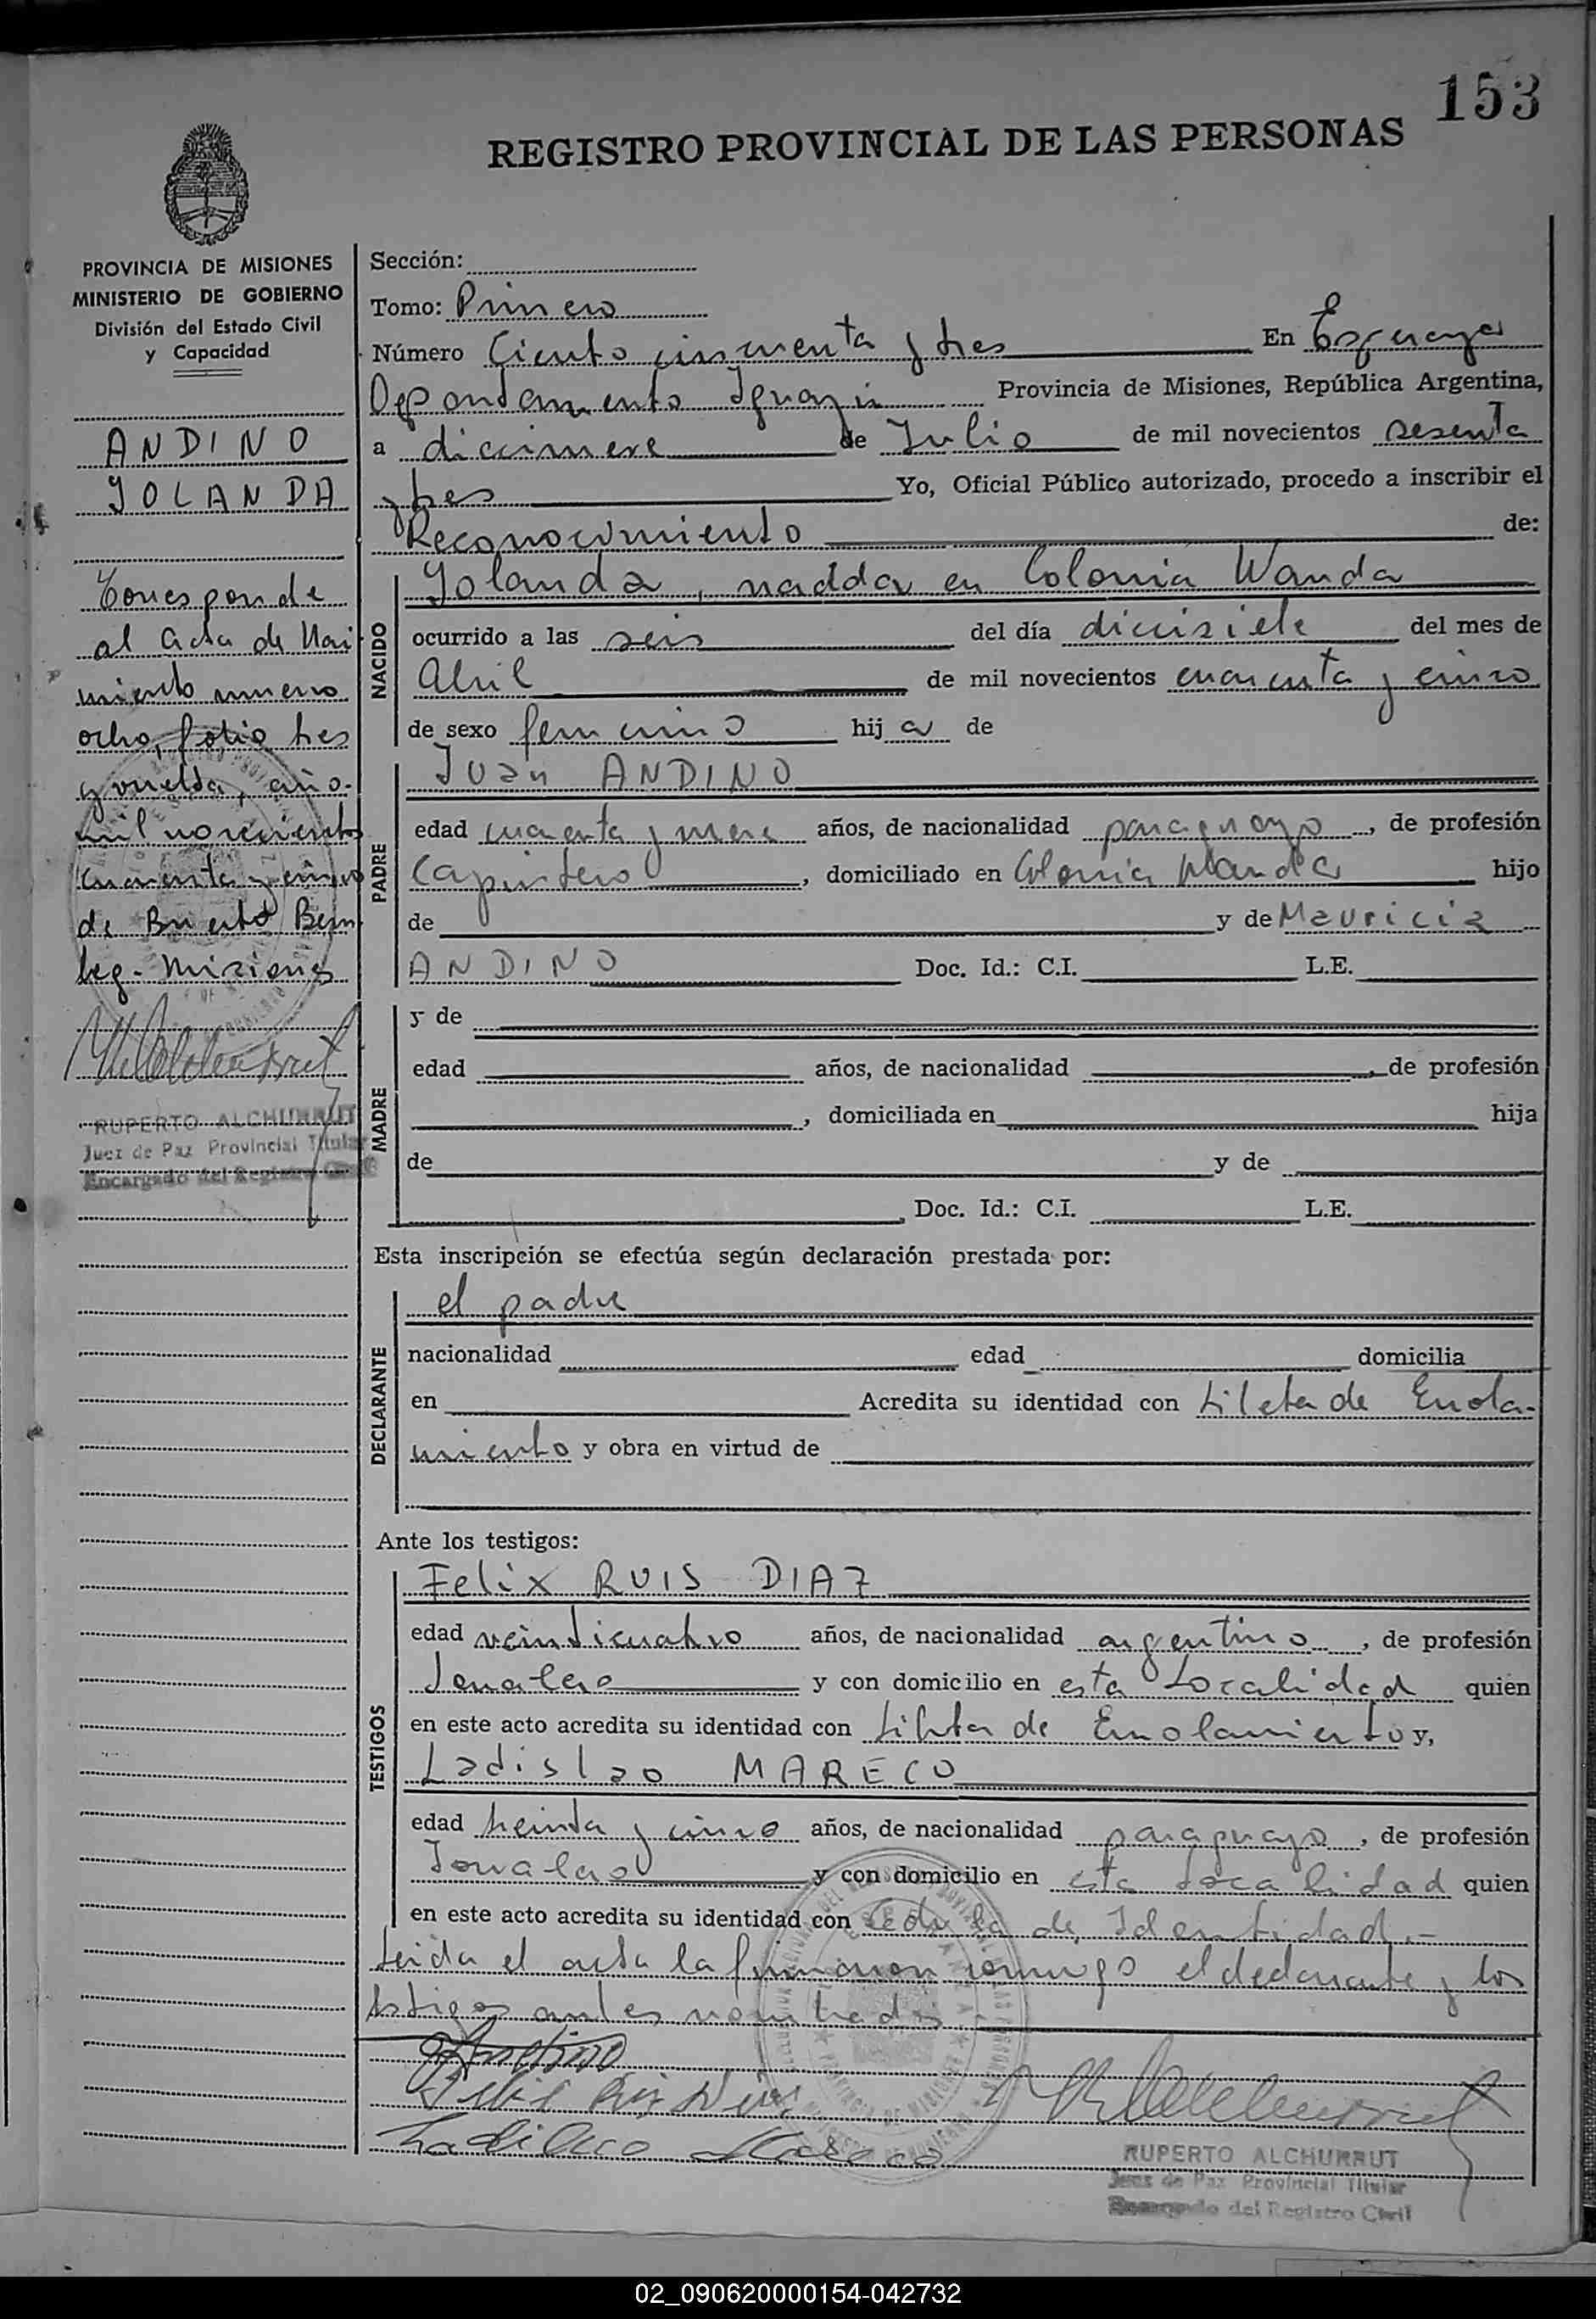 153
REGISTRO PROVINCIAL DE LAS PERSONAS
PROVINCIA DE MISIONES
MINISTERIO DE GOBIERNO
División del Estado Civil
y Capacidad
ANDINO
YOLANDA
Corresponde
al acta de Naci
miento numero
ocho, folio tres
y vuelta, año
mil novecientos
cuarenta y cinco
de Puerto Bem
beg - Misiones
RUPERTO ALCHURRUT
Juez de Paz Provincial Titular
Encargado del Registro Civil
Sección:
Tomo: Primero
Número Ciento cincuenta y tres En Esperanza
Departamento Iguazú Provincia de Misiones, República Argentina,
a diecinueve de Julio de mil novecientos sesenta
y tres Yo, Oficial Público autorizado, procedo a inscribir el
Reconocimiento de:
NACIDO
Yolanda, nacida en Colonia Wanda
ocurrido a las seis del día diecisiete del mes de
Abril de mil novecientos cuarenta y cinco
de sexo femenino hij a de
PADRE
Juan ANDINO
edad cuarenta y nueve años, de nacionalidad paraguayo, de profesión
Carpintero, domiciliado en Colonia Wanda hijo
de y de Mauricia
ANDINO Doc. Id.: C.I. L.E.
MADRE
y de
edad años, de nacionalidad , de profesión
, domiciliada en hija
de y de
Doc. Id.: C.I. L.E.
Esta inscripción se efectúa según declaración prestada por:
DECLARANTE
el padre
nacionalidad edad domicilia
en Acredita su identidad con Libreta de Enrola-
miento y obra en virtud de
Ante los testigos:
TESTIGOS
Felix RUIS DIAZ
edad veinticuatro años, de nacionalidad argentino, de profesión
Jornalero y con domicilio en esta Localidad quien
en este acto acredita su identidad con Libreta de Enrolamiento y,
Ladislao MARECO
edad treinta y cinco años, de nacionalidad paraguayo, de profesión
Jornalero y con domicilio en esta Localidad quien
en este acto acredita su identidad con Cedula de Identidad.-
Leida el acta la firmaron conmigo el declarante y los
testigos antes nombrados.-
Ladislao Mareco
RUPERTO ALCHURRUT
Juez de Paz Provincial Titular
Encargado del Registro Civil
02_090620000154-042732